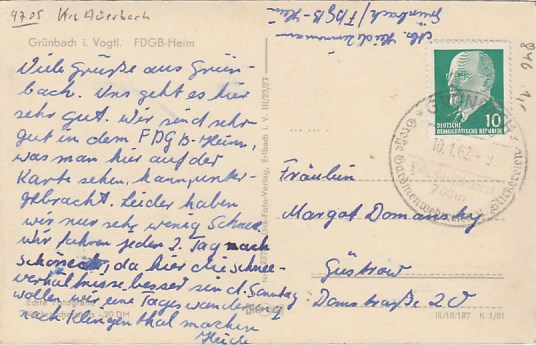 9705 Krs Auerbach
Grünbach i. Vogtl. FDGB-Heim
Viele Grüße aus Grün-
bach. Uns geht es hier
sehr gut. Wir sind sehr
gut in dem FDGB-Heim,
was man hier auf der
Karte sehen, kann, unter-
gebracht. Leider haben
wir nur sehr wenig Schnee.
Wir fahren jeden 2. Tag nach
Schöneck, da hier die Schnee-
verhältnisse besser sind. Sonntag
wollen wir eine Tageswanderung
nach Klingenthal machen
Heide
Echte Fotografie
-20 DM
Foto-Verlag, Erlbach i. V. III/23/23
Abs. Heidi Zimmermann
Grünbach/FDGB-Heim
846
10
DEUTSCHE
DEMOKRATISCHE REPUBLIK
GRÜNBACH
10.1.62
Große Gardinenweberei Stickereien
Fräulein
Margot Domansky
Güstrow
Domstraße 20
III/18/197 K 1/61